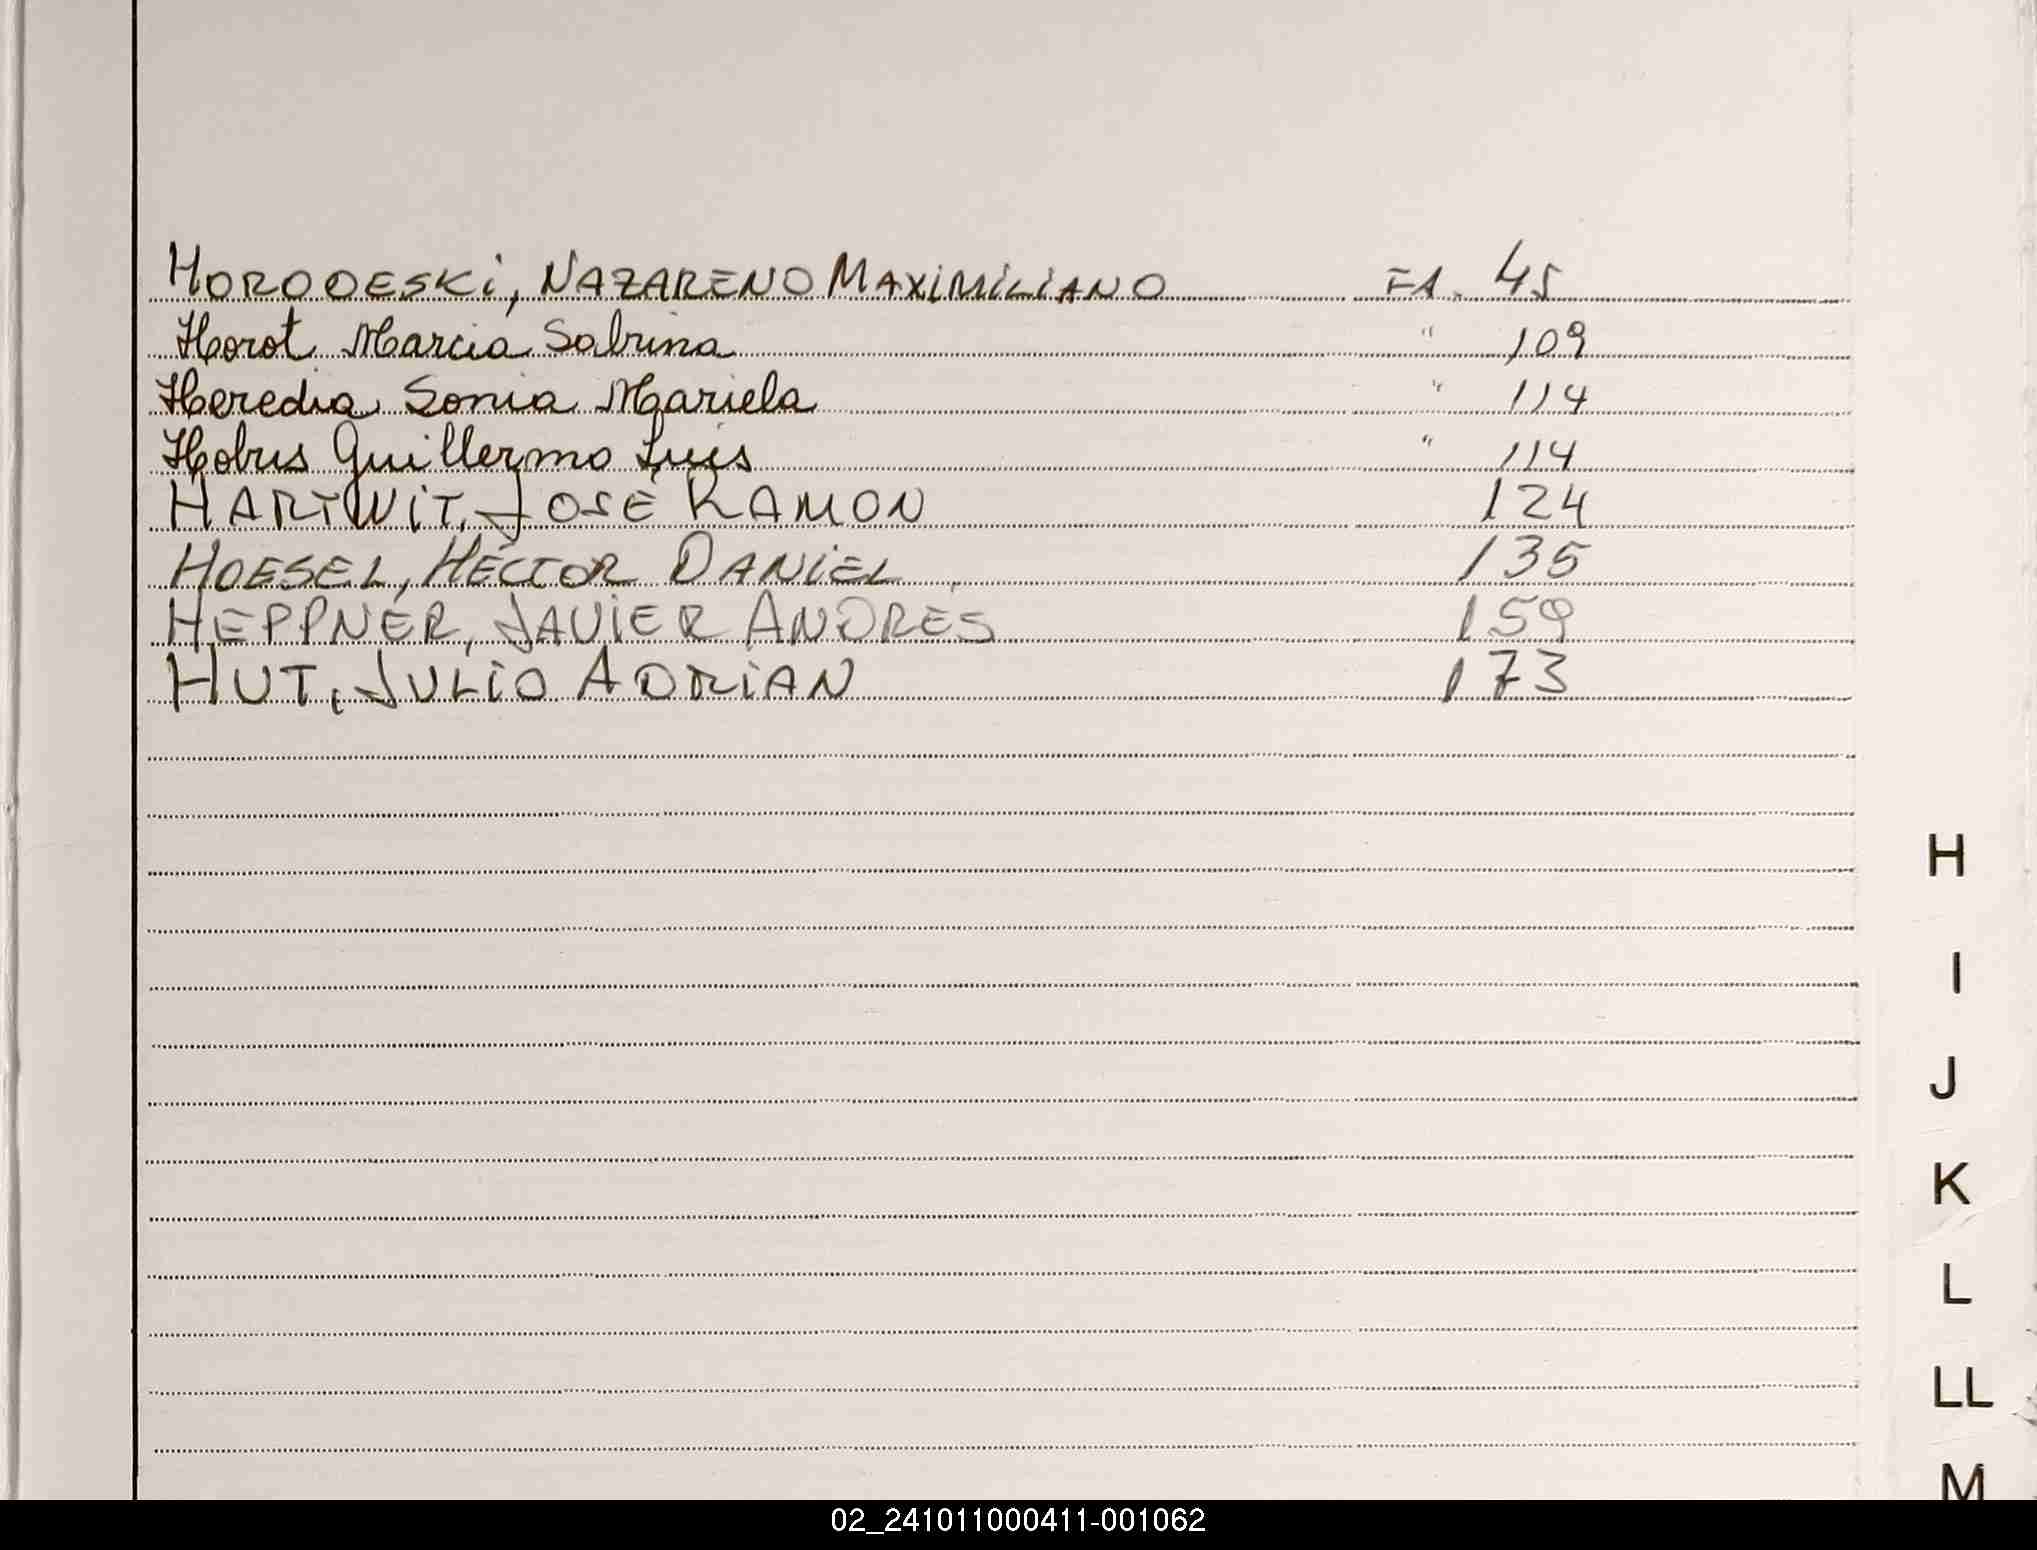 HORODESKI, NAZARENO MAXIMILIANO F1. 45
Horot Marcia Sabrina " 109
Heredia Sonia Mariela " 114
Hobus Guillermo Luis " 114
HARTWIT, JOSÉ RAMON 124
HOESEL, HÉCTOR DANIEL 135
HEPPNER, JAVIER ANDRES 159
HUT, JULIO ADRIAN 173
H
I
J
K
L
LL
M
02_241011000411-001062